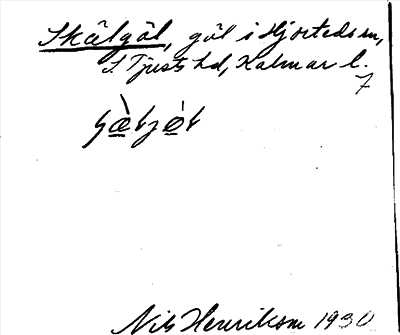 Skälgöl, göl i Hjorteds sn,
S Tjusts hd, Kalmar l.
7
Nils Henrikson 1930